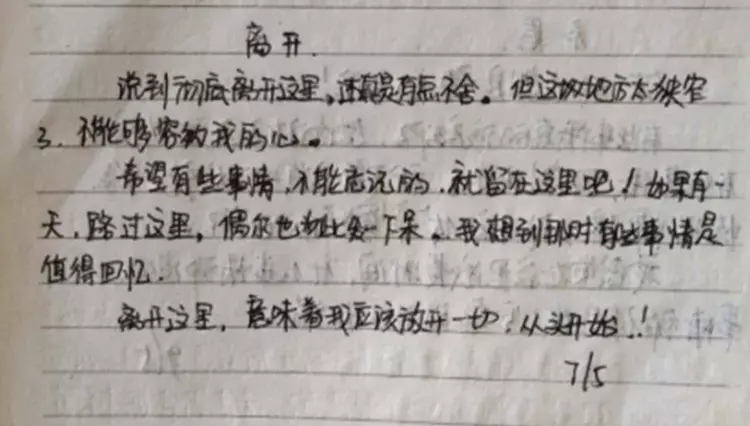 离开.
说到彻底离开这里,还真是有点不舍。但这块地方太狭窄
了.不能够容纳我的心。
希望有些事情,不能忘记的,就留在这里吧!如果有一
天,路过这里,偶尔也会一下呆。我想到那时有些事情是
值得回忆.
离开这里,意味着我应该放开一切,从头开始!!
7/5